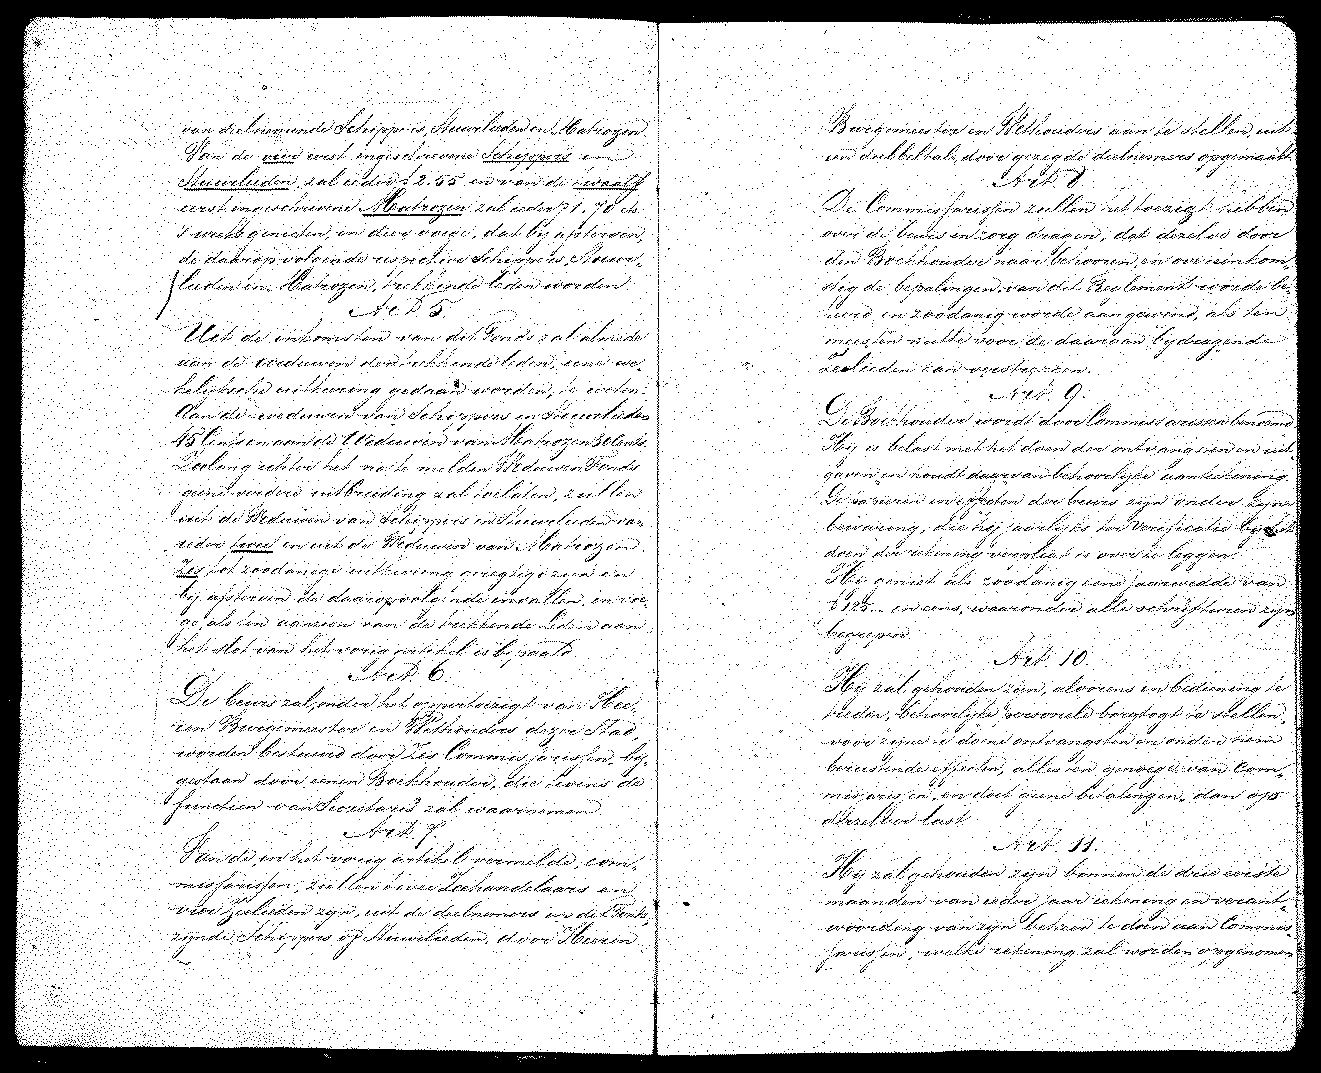 van deelnemende Schippers, Stuurlieden en Matrozen.
Van de vier eerst ingeschrevene Schippers en
Stuurlieden, zal ieder f 2.55 en van de twaalf
eerst ingeschrevene Matrozen zal ieder f 1.70 cts
's weeks genieten, en dier voege, dat bij afsterven,
de daarop volgende respective Schippers, Stuur-
lieden en Matrozen, trekkende leden worden
Art 5.
Uit de inkomsten van dit Fonds zal almede
aan de weduwen der trekkende leden, eene we-
kelijksche uitkeering gedaan worden, te weten:
Aan de weduwen van Schippers en Stuurlieden
45 Cents en aan de Weduwen van Matrozen 30 Cents.
Zoolang echter het na te melden Weduwen Fonds
geene verdere uitbreiding zal toelaten, zullen
uit de Weduwen van Schippers en Stuurlieden
twee en uit de Weduwen van Matrozen
zes, tot zoodanige uitkeering geregtigd zijn en
bij afsterven de daaropvolgende invallen, en voe-
ge, als ten aanzien van de trekkende leden aan
het slot van het vorig artikel is bepaald.
Art. 6.
De beurs zal, onder het oppertoezigt van Hee-
ren Burgemeester en Wethouders dezer Stad,
worden bestuurd door Zes Commissarissen, bij-
gestaan door eenen Boekhouder, die tevens de
functien van Secretaris zal waarnemen
Art. 7.
Van de, in het vorig artikel vermelde, com-
missarissen, zullen twee Zeehandelaars en
vier Zeelieden zijn, uit de deelnemers in dit Fonds,
zijnde Schippers of Stuurlieden, door Heeren
Burgemeester en Wethouders aan te stellen, uit
een dubbeltal, door gezegde deelnemers opgemaakt.
Art. 8
De Commissarissen zullen het toezigt hebben
over de beurs en zorg dragen, dat dezelve door
den Boekhouder naar behooren, en overeenkom-
stig de bepalingen van dit Reglement worde be-
heerd en zoodanig worde aangewend, als ten
meesten nutte voor de daaraan bijdragende
Zeelieden kan verstrekken.
Art. 9.
De Boekhouder wordt door Commissarissen benoemd
Hij is belast met het doen der ontvangsten en uit-
gaven en houdt daarvan behoorlijke aanteekening.
De papieren en effecten der beurs zijn onder zijne
bewaring, die hij jaarlijks ter verificatie bij het
doen der rekening verpligt is over te leggen.
Hij geniet als zoodanig eene jaarwedde van
f 125.- en eens, waaronder alle schrijfloonen zijn
begrepen.
Art. 10.
Hij zal gehouden zijn, alvorens in bediening te
treden, behoorlijke personele borgtogt te stellen,
voor zijne te doene ontvangsten en onder hem
berustende effecten, alles ten genoege van Com-
missarissen, en doet geene betalingen, dan op
derzelver last.
Art. 11.
Hij zal gehouden zijn binnen de drie eerste
maanden van ieder jaar rekening en verant-
woording van zijn beheer te doen aan Commis-
sarissen, welke rekening zal worden opgenomen